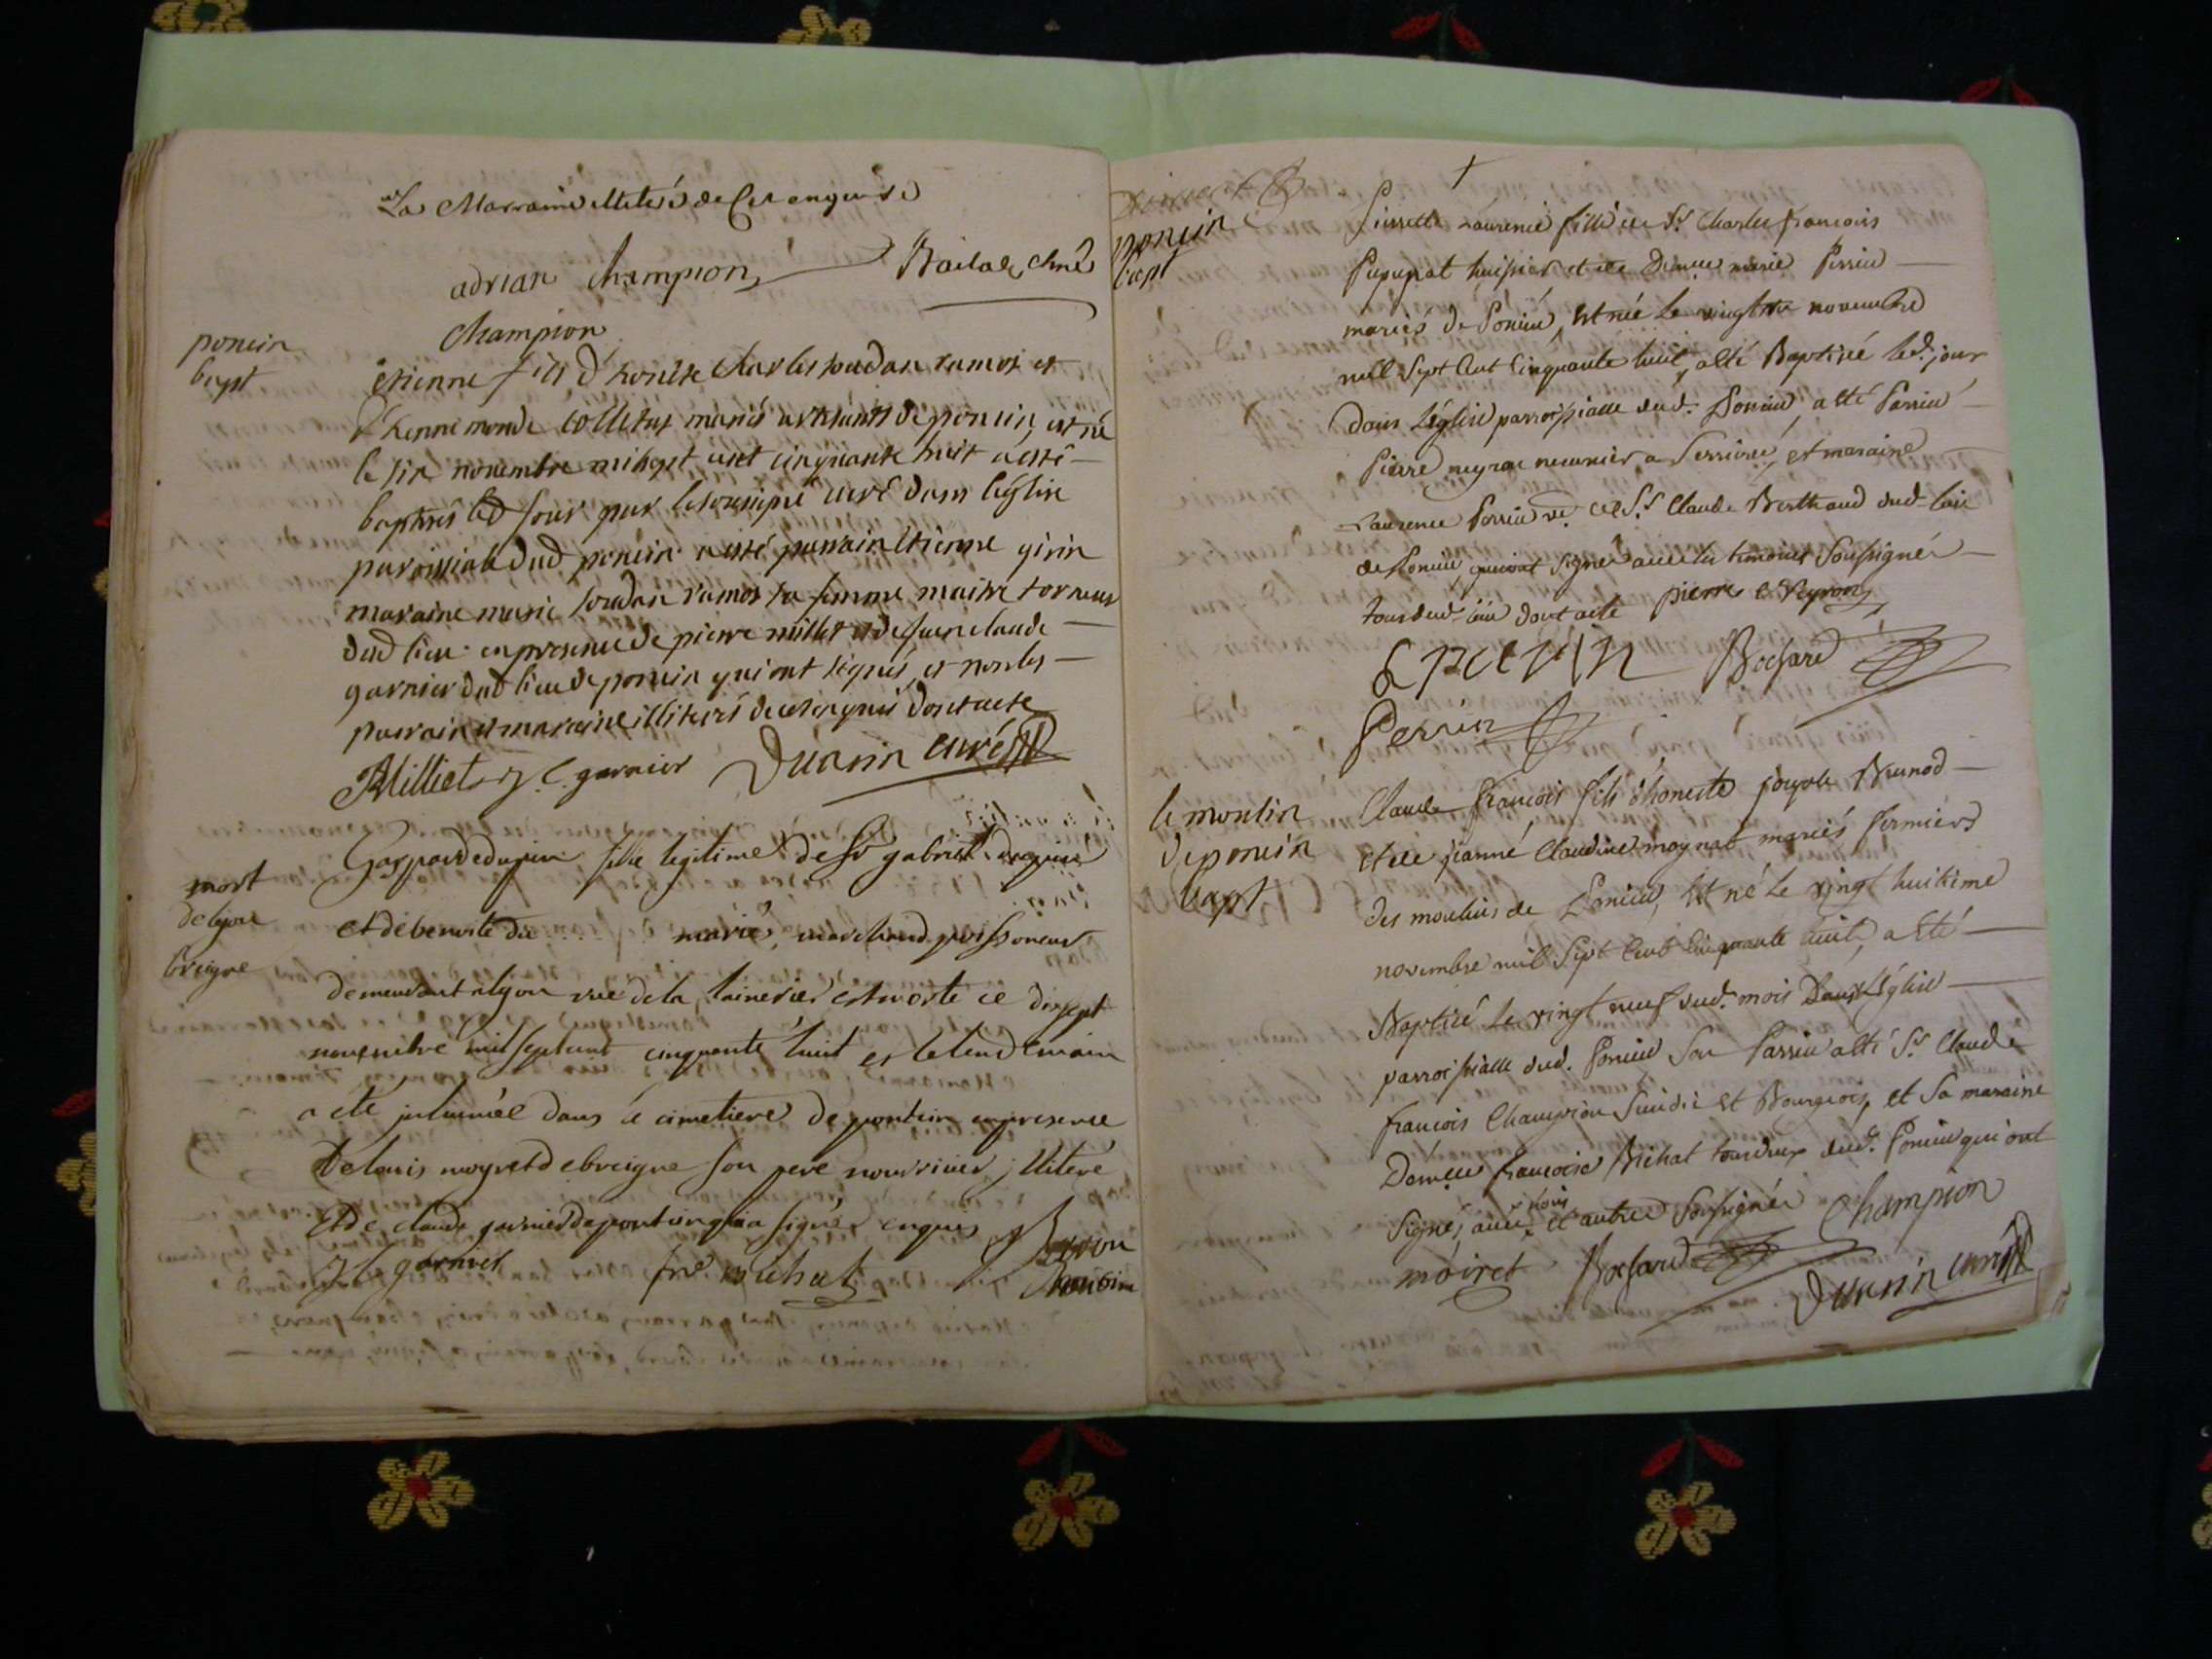 La Marraine illiterée de ce enquise
adrian Champion Bailad
Champion
poncin
bapt
etienne fils d'honête Charles soudan ramos et
d'hennemonde colletus mariés artisants de poncin, est né
le six novembre mil sept cent cinquante huit a esté
baptisés led jour par le soussigné curé dans l'église
paroissiale dud poncin a esté parrain etienne girin
maraine marie soudan ramos sa femme maitre
dud lieu en presence de pierre milliet et de claude
garnier dud lieu de poncin qui ont signés, et non les
parrain et maraine illiterés de ce enquis dont acte
Milliet j. c. garnier Duarin curé
mort
de lyon
breigne
Gasparde dupin fille legitime de Sr gabriel dupin
et de benoite du .... mariés, marchand poissoneur
demeurant a lyon rue de la lainerie est morte ce dixsept
novembre mil sept cent cinquante huit et le lendemain
a été inhumée dans le cimetiere de pontein en presence
de louis moyret de breigne son pere nourricier illiteré
et de claude garnier de pontein qui a signé enquis
j c garnier fre michat
poncin
bapt
Pierrette Laurence fille de Sr Charles françois
Pupunat huissier et de Demlle marie Perrin
mariés de Poncin, est née le novembre
mil sept cent cinquante huit, a été Baptisée led. jour
dans l'église parroissialle dud. Poncin, a été Parrin
Pierre neyron meunier a Serrieres, et maraine
Laurence Perrin ve. de Sr Claude Berthaud dud. lieu
de Poncin, qui ont signés avec les temoins soussignés
tous dud. lieu dont acte pierre Neyron
Bossard
Perrin
le moulin
de poncin
bapt
Claude françois fils d'honeste joseph Brunod
et de jeanne Claudine moynat mariés fermiers
des moulins de Poncin, est né le vingt huitième
novembre mil sept cent cinquante huit, a été
Baptisé le vingt neuf dud. mois dans l'église
parroissialle dud. Poncin son Parrin a été Sr Claude
françois Champion sindic et Bourgeois, et sa maraine
Demlle françoise Bichat tous deux dud. Poncin qui ont
signés avec nous et autres soussignés Champion
moiret Bossard Duarin curé